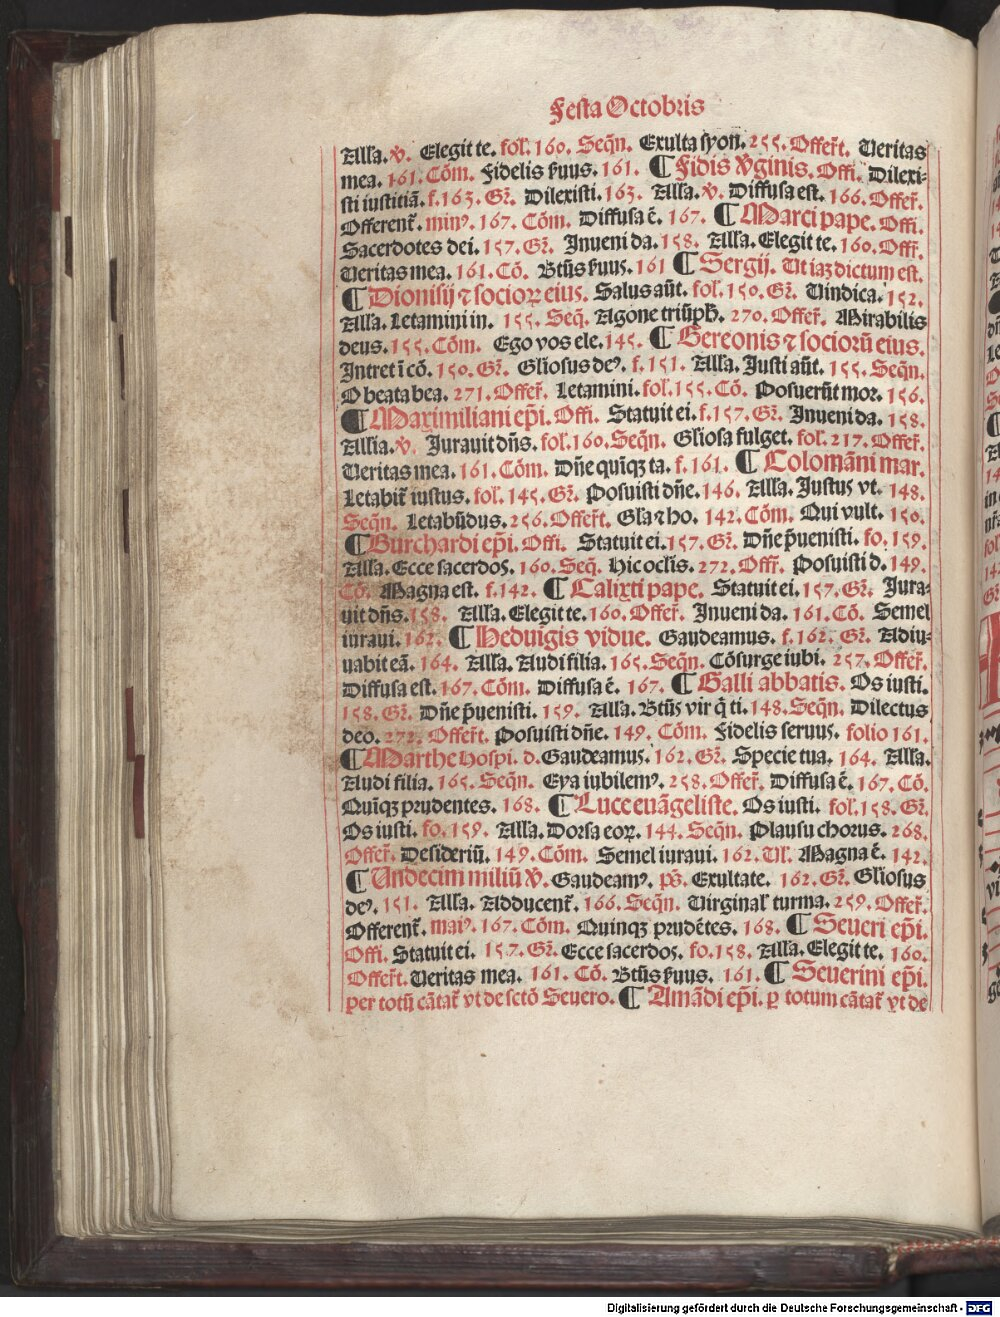 Festa Octobris
Alla. ꝟ. Elegit te. fol. 160. Seqn̄. Exulta syon. 255. Offerṫ. Ueritas
mea. 161. Cōm. Fidelis ẜuus. 161. ¶ Fidis ꝟginis. Offi. Dilexi⸗
sti iustitiā. f. 163. Gr̄. Dilexisti. 163. Alla. ꝟ. Diffusa est. 166. Offer̄.
Offerent̄. minꝰ. 167. Cōm. Diffusa ē. 167. ¶ Marci pape. Offi.
Sacerdotes dei. 157. Gr̄. Inueni da. 158. Alla. Elegit te. 160. Offr̄.
Ueritas mea. 161. Cō. Btūs ẜuus. 161 ¶ Sergij. Ut iaꝫ dictum est.
¶ Dionisij ⁊ socioꝝ eius. Salus aūt. fol. 150. Gr̄. Uindica. 152.
Alla. Letamini in. 155. Seq̄. Agone triūph. 270. Offer̄. Mirabilis
deus. 155. Cōm. Ego vos ele. 145. ¶ Gereonis ⁊ sociorū eius.
Intret ī cō. 150. Gr̄. Gliosus deꝰ. f. 151. Alla. Justi aūt. 155. Seqn̄.
O beata bea. 271. Offer̄. Letamini. fol. 155. Cō. Posuerūt mor. 156.
¶ Maximiliani ep̄i. Offi. Statuit ei. f. 157. Gr̄. Inueni da. 158.
Allia. ꝟ. Jurauit dn̄s. fol. 160. Seqn̄. Gliosa fulget. fol. 217. Offer̄.
Ueritas mea. 161. Cōm. Dn̄e quīqꝫ ta. f. 161. ¶ Colomāni mar.
Letabit̄ iustus. fol. 145. Gr̄. Posuisti dn̄e. 146. Alla. Justus vt. 148.
Seqn̄. Letabūdus. 256. Offerṫ. Gla ⁊ ho. 142. Cōm. Qui vult. 150.
¶ Burchardi ep̄i. Offi. Statuit ei. 157. Gr̄. Dn̄e p̄uenisti. fo. 159.
Alla. Ecce sacerdos. 160. Seq̄. Hic oclis. 272. Offr̄. Posuisti d. 149.
Cō. Magna est. f. 142. ¶ Calixti pape. Statuit ei. 157. Gr̄. Jura⸗
uit dn̄s. 158. Alla. Elegit te. 160. Offer̄. Inueni da. 161. Cō. Semel
iuraui. 162. ¶ Heduigis vidue. Gaudeamus. f. 162. Gr̄. Adiu⸗
uabit eā. 164. Alla. Audi filia. 165. Seqn̄. Cōsurge iubi. 257. Offer̄.
Diffusa est. 167. Cōm. Diffusa ē. 167. ¶ Galli abbatis. Os iusti.
158. Gr̄. Dn̄e p̄uenisti. 159. Alla. Btūs vir q̄ ti. 148. Seqn̄. Dilectus
deo. 272. Offerṫ. Posuisti dn̄e. 149. Cōm. Fidelis seruus. folio 161.
¶ Marthe hospi. d. Gaudeamus. 162. Gr̄. Specie tua. 164. Alla.
Audi filia. 165. Seqn̄. Eya iubilemꝰ. 258. Offer̄. Diffusa ē. 167. Cō.
Quīqꝫ prudentes. 168. ¶ Luce euāgeliste. Os iusti. fol. 158. Gr̄.
Os iusti. fo. 159. Alla. Dorsa eoꝝ. 144. Seqn̄. Plausu chorus. 268.
Offer̄. Desideriū. 149. Cōm. Semel iuraui. 162. Ul. Magna ē. 142.
¶ Undecim miliū ꝟ. Gaudeamꝰ. p̄s. Exultate. 162. Gr̄. Gliosus
deꝰ. 151. Alla. Adducent̄. 166. Seqn̄. Uirginal̓ turma. 259. Offer̄.
Offerent̄. maiꝰ. 167. Cōm. Quinqꝫ prudētes. 168. ¶ Seueri ep̄i.
Offi. Statuit ei. 157. Gr̄. Ecce sacerdos. fo. 158. Alla. Elegit te. 160.
Offerṫ. Ueritas mea. 161. Cō. Btūs ẜuus. 161. ¶ Seuerini ep̄i.
per totū cātat̄ vt de sctō Seuero. ¶ Amādi ep̄i. ꝑ totum cātat̄ vt de
Digitalisierung gefördert durch die Deutsche Forschungsgemeinschaft - DFG